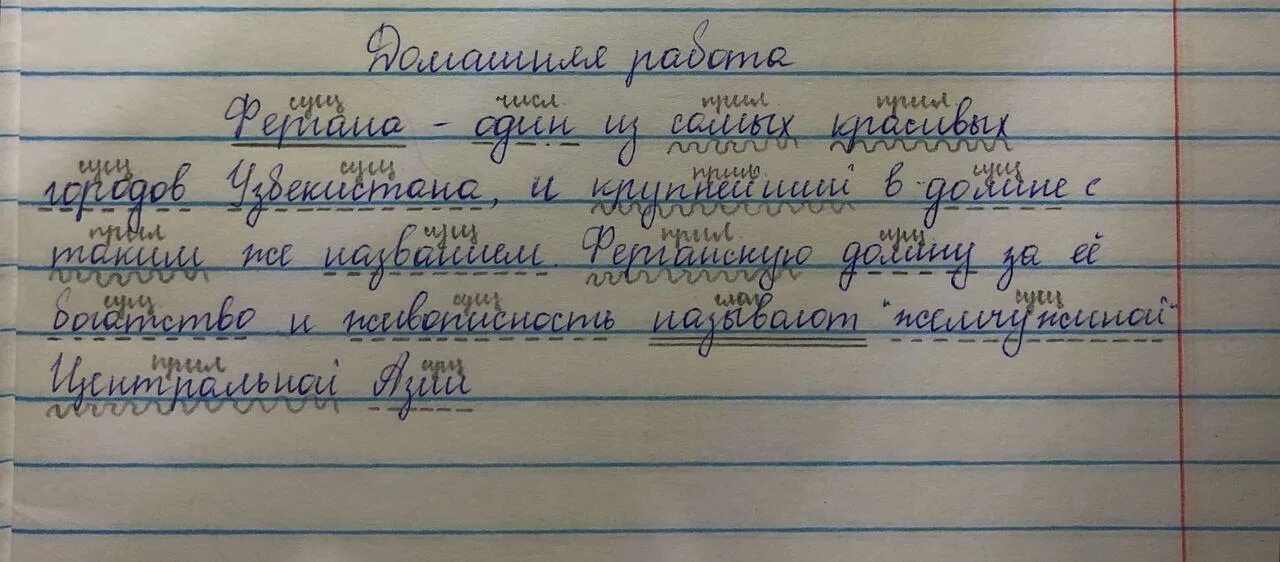 Домашняя работа
сущ числ. прил прил
Фергана - один из самых красивых
сущ сущ прил. сущ
городов Узбекистана, и крупнейший в долине с
прил сущ прил. сущ
таким же названием. Ферганскую долину за её
сущ сущ глаг сущ
богатство и живописность называют "жемчужиной"
прил сущ
Центральной Азии